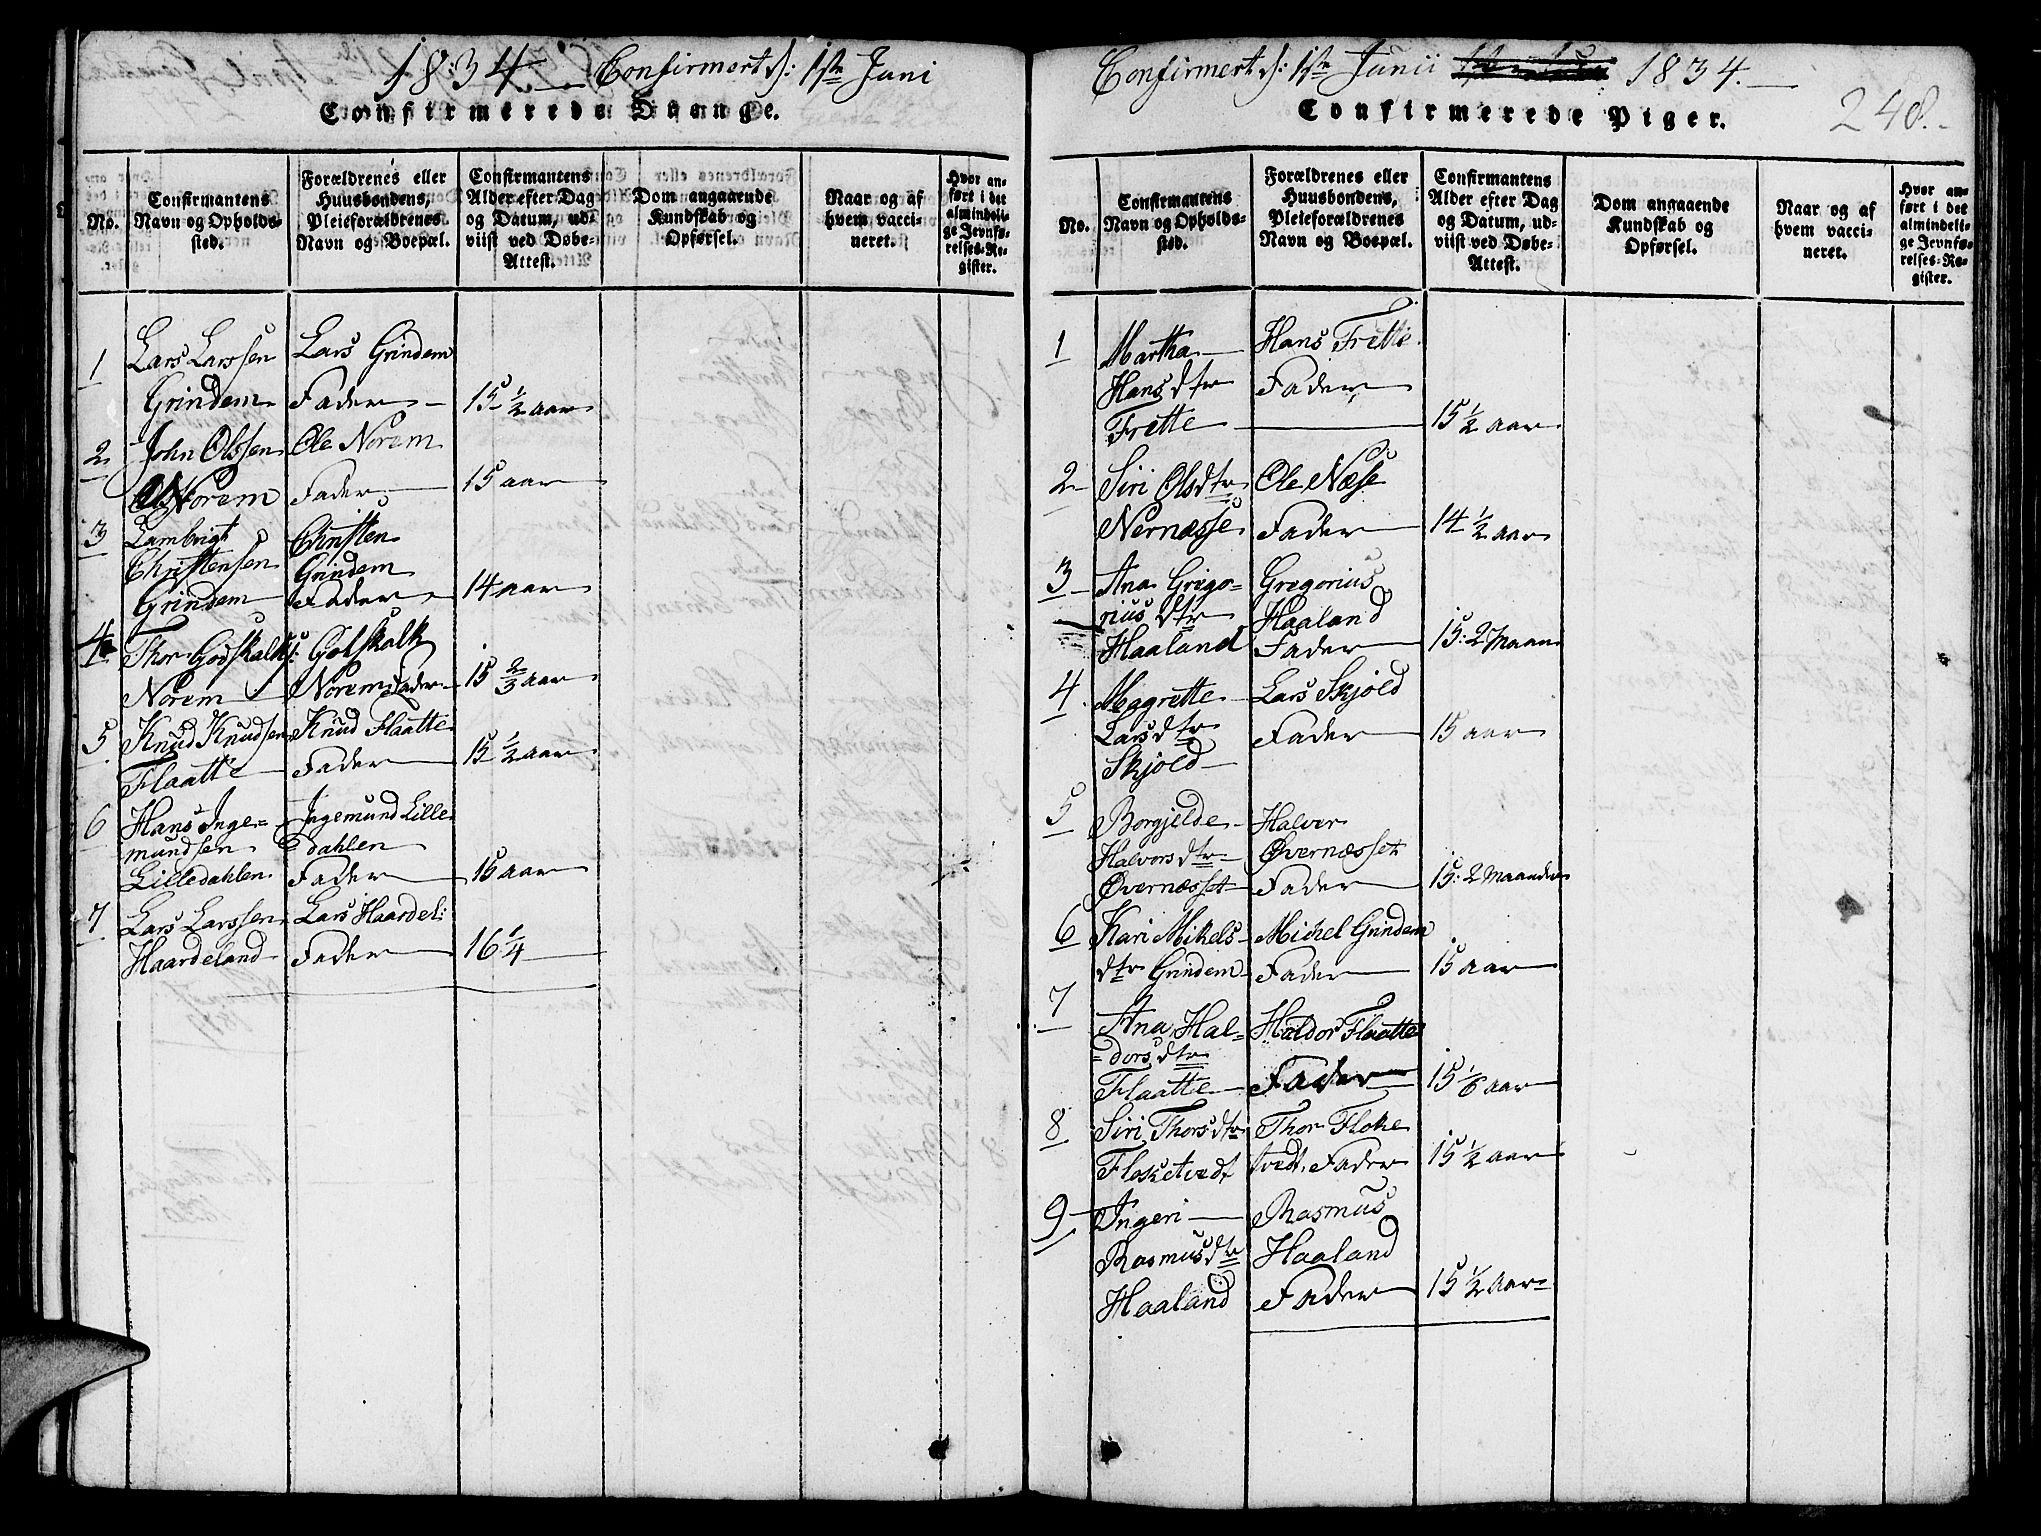 1834. Confirmert d: 1ste Juni
Confirmerede Drenge.
No.
Confirmantens Navn og Opholds-sted.
Forældrenes eller Huusbondens, Pleieforældrenes Navn og Boepæl.
Confirmantens Alder efter Dag og Datum, ud-viist ved Døbe-Attest.
Dom angaaende Kundskab og Opførsel.
Naar og af hvem vacci-neret.
Hvor an-ført i det almindeli-ge Jevnfø-relses-Re-gister.
1 Lars Larssen Lars Grindem
Grindem Fader 15 1/2 aar
2 John Olssen Ole Norem
Norem Fader 15 aar
3 Lambrigt Christen
Christensen Grindem
Grindem Fader 14 aar
4 Thor Godskalks: Gotskalk
Norem Norem Fader 15 2/3 aar
5 Knud Knudsen Knud Flaatte
Flaatte Fader 15 1/2 aar
6 Hans Inge= Ingemund Lille
mundsen dahlen
Lilledahlen Fader 15 aar
7 Lars Larssen Lars Haardel:
Haardeland Fader 16 1/4
Confirmert d: 1ste Junii 1834.
248.
Confirmerede Piger.
No.
Confirmantens Navn og Opholds-sted.
Forældrenes eller Huusbondens, Pleieforældrenes Navn og Boepæl.
Confirmantens Alder efter Dag og Datum, ud-viist ved Døbe-Attest.
Dom angaaende Kundskab og Opførsel.
Naar og af hvem vacci-neret.
Hvor an-ført i det almindeli-ge Jevnfø-relses-Re-gister.
1 Martha Hans Frette
Hans dtr Fader
Frette 15 1/2 aar
2 Siri Olsdtr Ole Næse
Nernæsse Fader 14 1/2 aar
3 Ana Grego= Gregorius
rius dtr Haaland
Haaland Fader 15: 2 Maan
4 Magrette Lars Skjold
Larsdtr Fader 15 aar
Skjold
5 Borgjelde Halver
Halvorsdtr Øvernæsset
Øvernæsset Fader 15: 2 Maander
6 Kari Mikels Michel Grindem
dtr Grindem Fader 15 aar
7 Ana Hal= Haldor Flaatte
=dorsdtr
Flaatte Fader 15 1/6 aar
8 Siri Thorsdtr Thor Floke
Flosketvedt tvedt, Fader 15 1/2 aar
9 Ingeri Rasmus
Rasmusdtr Haaland
Haaland Fader 15 1/2 aar